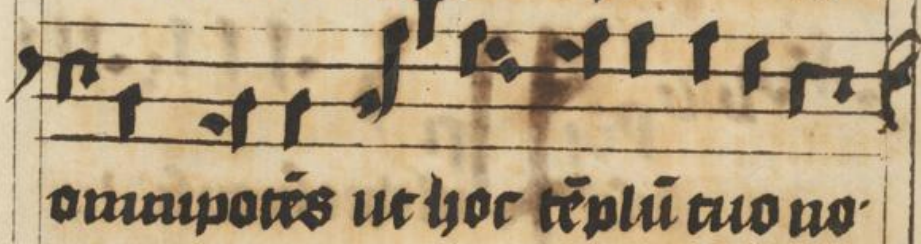 omnipotēs ut hoc tēplū tuo no·